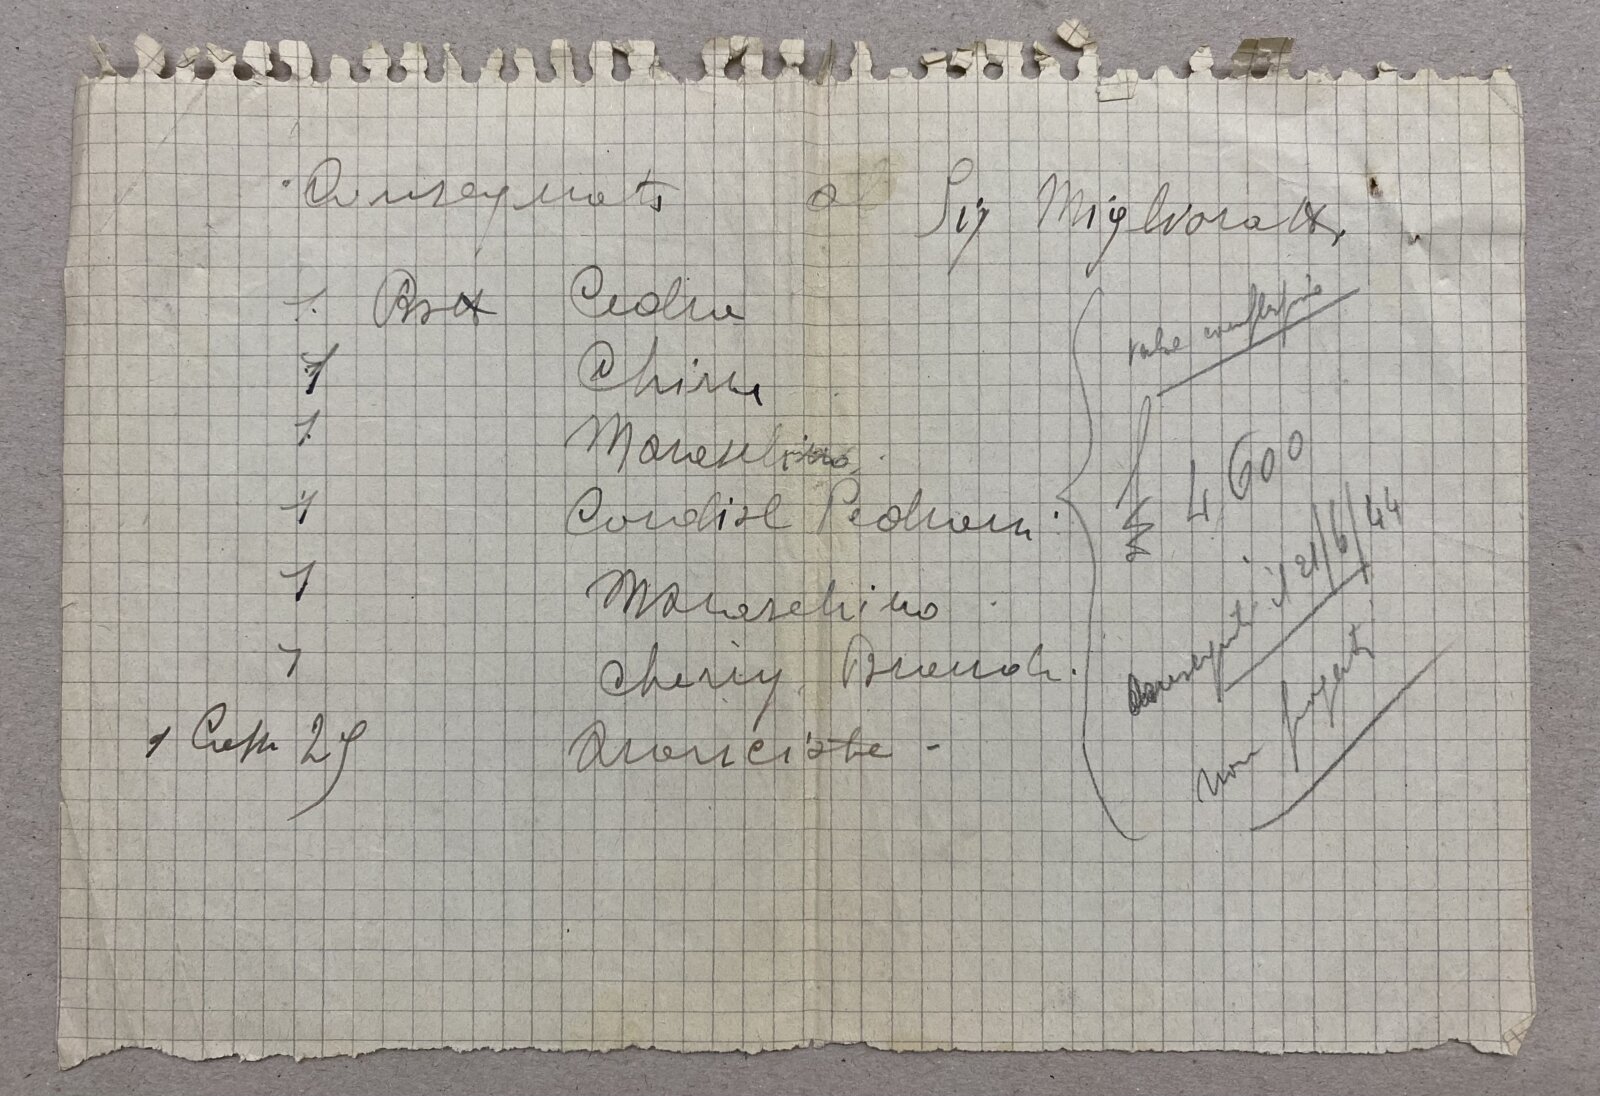 Consegnato al Sig Miglioratti.
1. Bott Cedro
1 China
1. Maraschino
1 Cordial Pedroni.
1 Maraschino.
1 Cherry Brandi.
1 29 Aranciate -
valore complessivo
£ 4600
consegnati il 21/6/44
non pagati